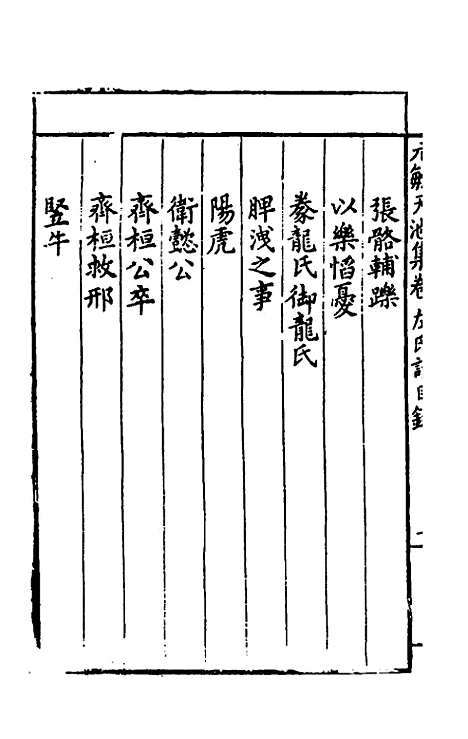 張骼輔躒
以樂慆憂
豢龍氏御龍氏
脾洩之事
陽虎
衛懿公
齊桓公卒
齊桓救邢
豎牛
天池集卷左氏討目錄